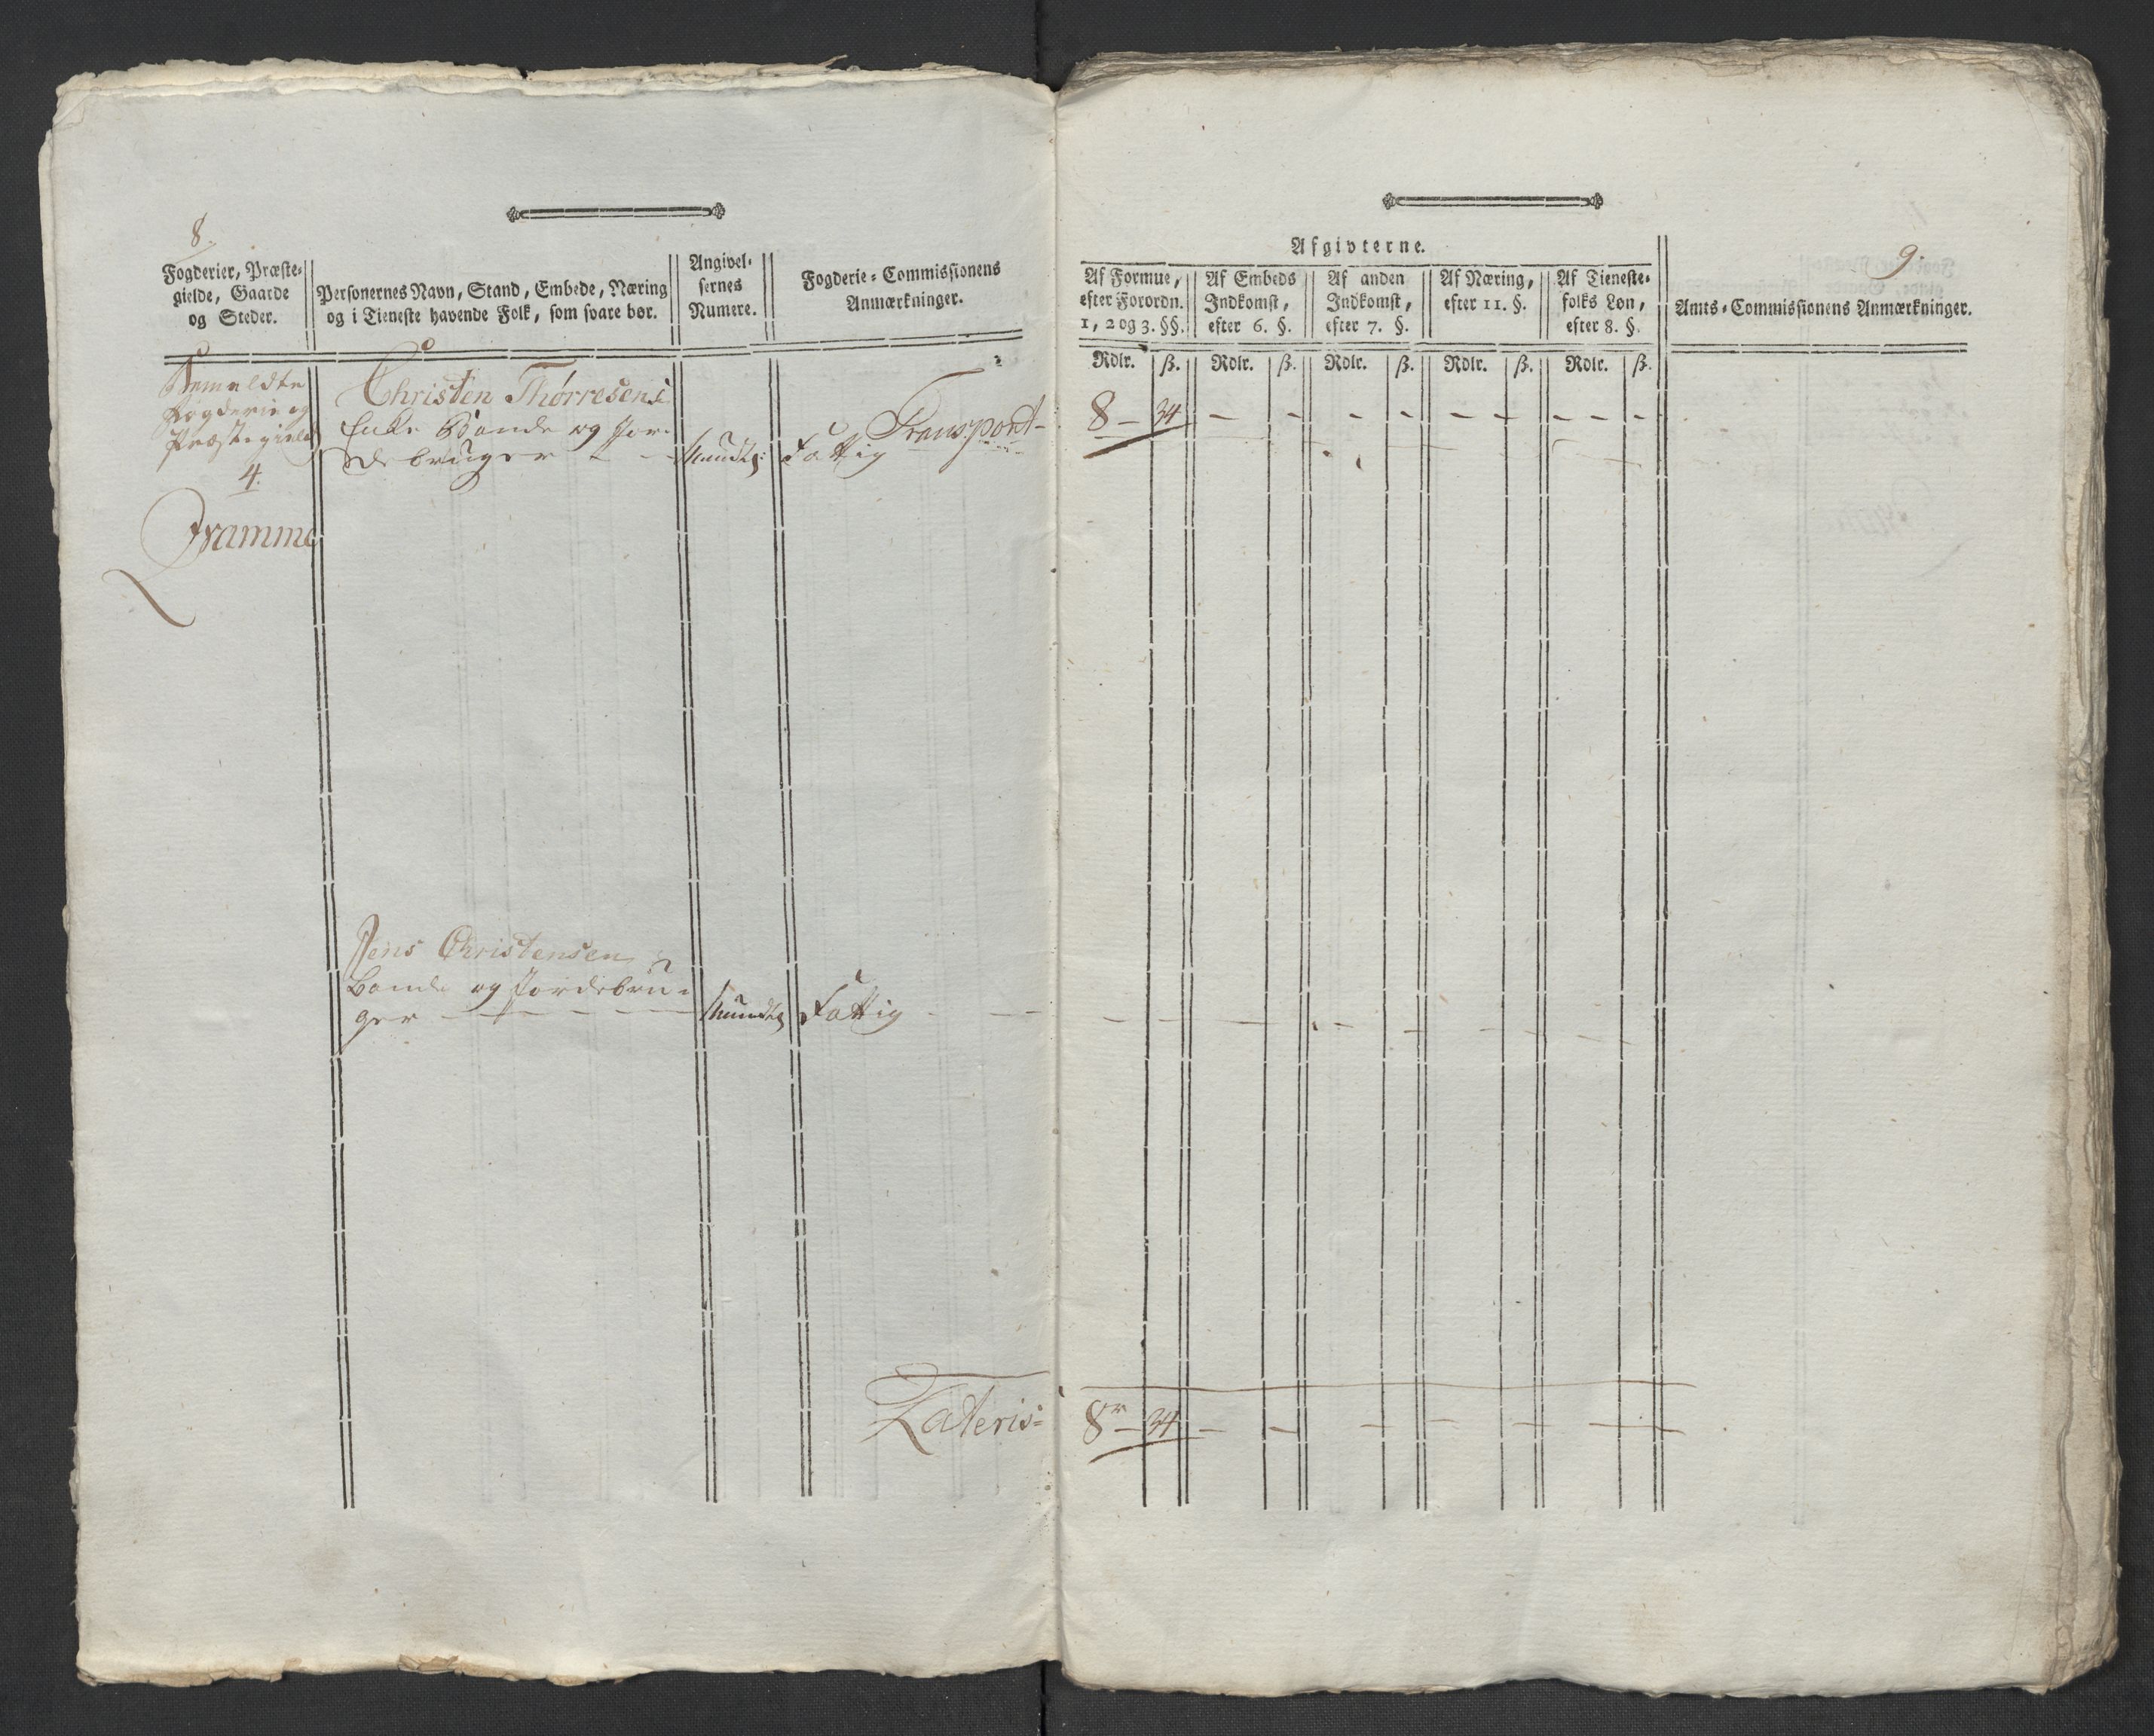 8.
Fogderier, Præste-
gielde, Gaarde
og Steder.
Personernes Navn, Stand, Embede, Næring
og i Tieneste havende Folk, som svare bør.
Angivel-
sernes
Numere.
Fogderie-Commissionens
Anmærkninger.
Bemeldte
Fogderie og
Præstegield
4.
Christen Thørresens
Enke Bonde og Jor-
debruger - -
Mundtl:
Fattig
Transport-
Jens Christensen
Bonde og Jordebru-
ger - - - - -
Mundtl
Fattig - - -
Lateris-
9.
Afgivterne.
Af Formue,
efter Forordn.
1, 2 og 3. §§.
Af Embeds
Indkomst,
efter 6. §.
Af anden
Indkomst,
efter 7. §.
Af Næring,
efter 11. §.
Af Tieneste-
folks Løn,
efter 8. §.
Amts-Commissionens Anmærkninger.
Rdlr. ß. Rdlr. ß. Rdlr. ß. Rdlr. ß. Rdlr. ß.
8 - 34 - - - - - - - -
- - - - - - - - - -
8 - 34 - - - - - - -